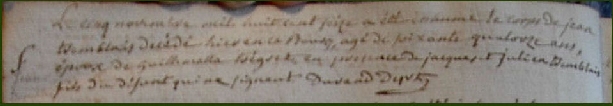 Le cinq novembre mil huit cent seize a été inhumé le corps de jean
Bemblais décédé hier en ce Bourg, agé de soixante quatorze ans,
époux de Guillemette Bégret, en présence de jacques et julien Bemblais
fils du défunt qui ne signent